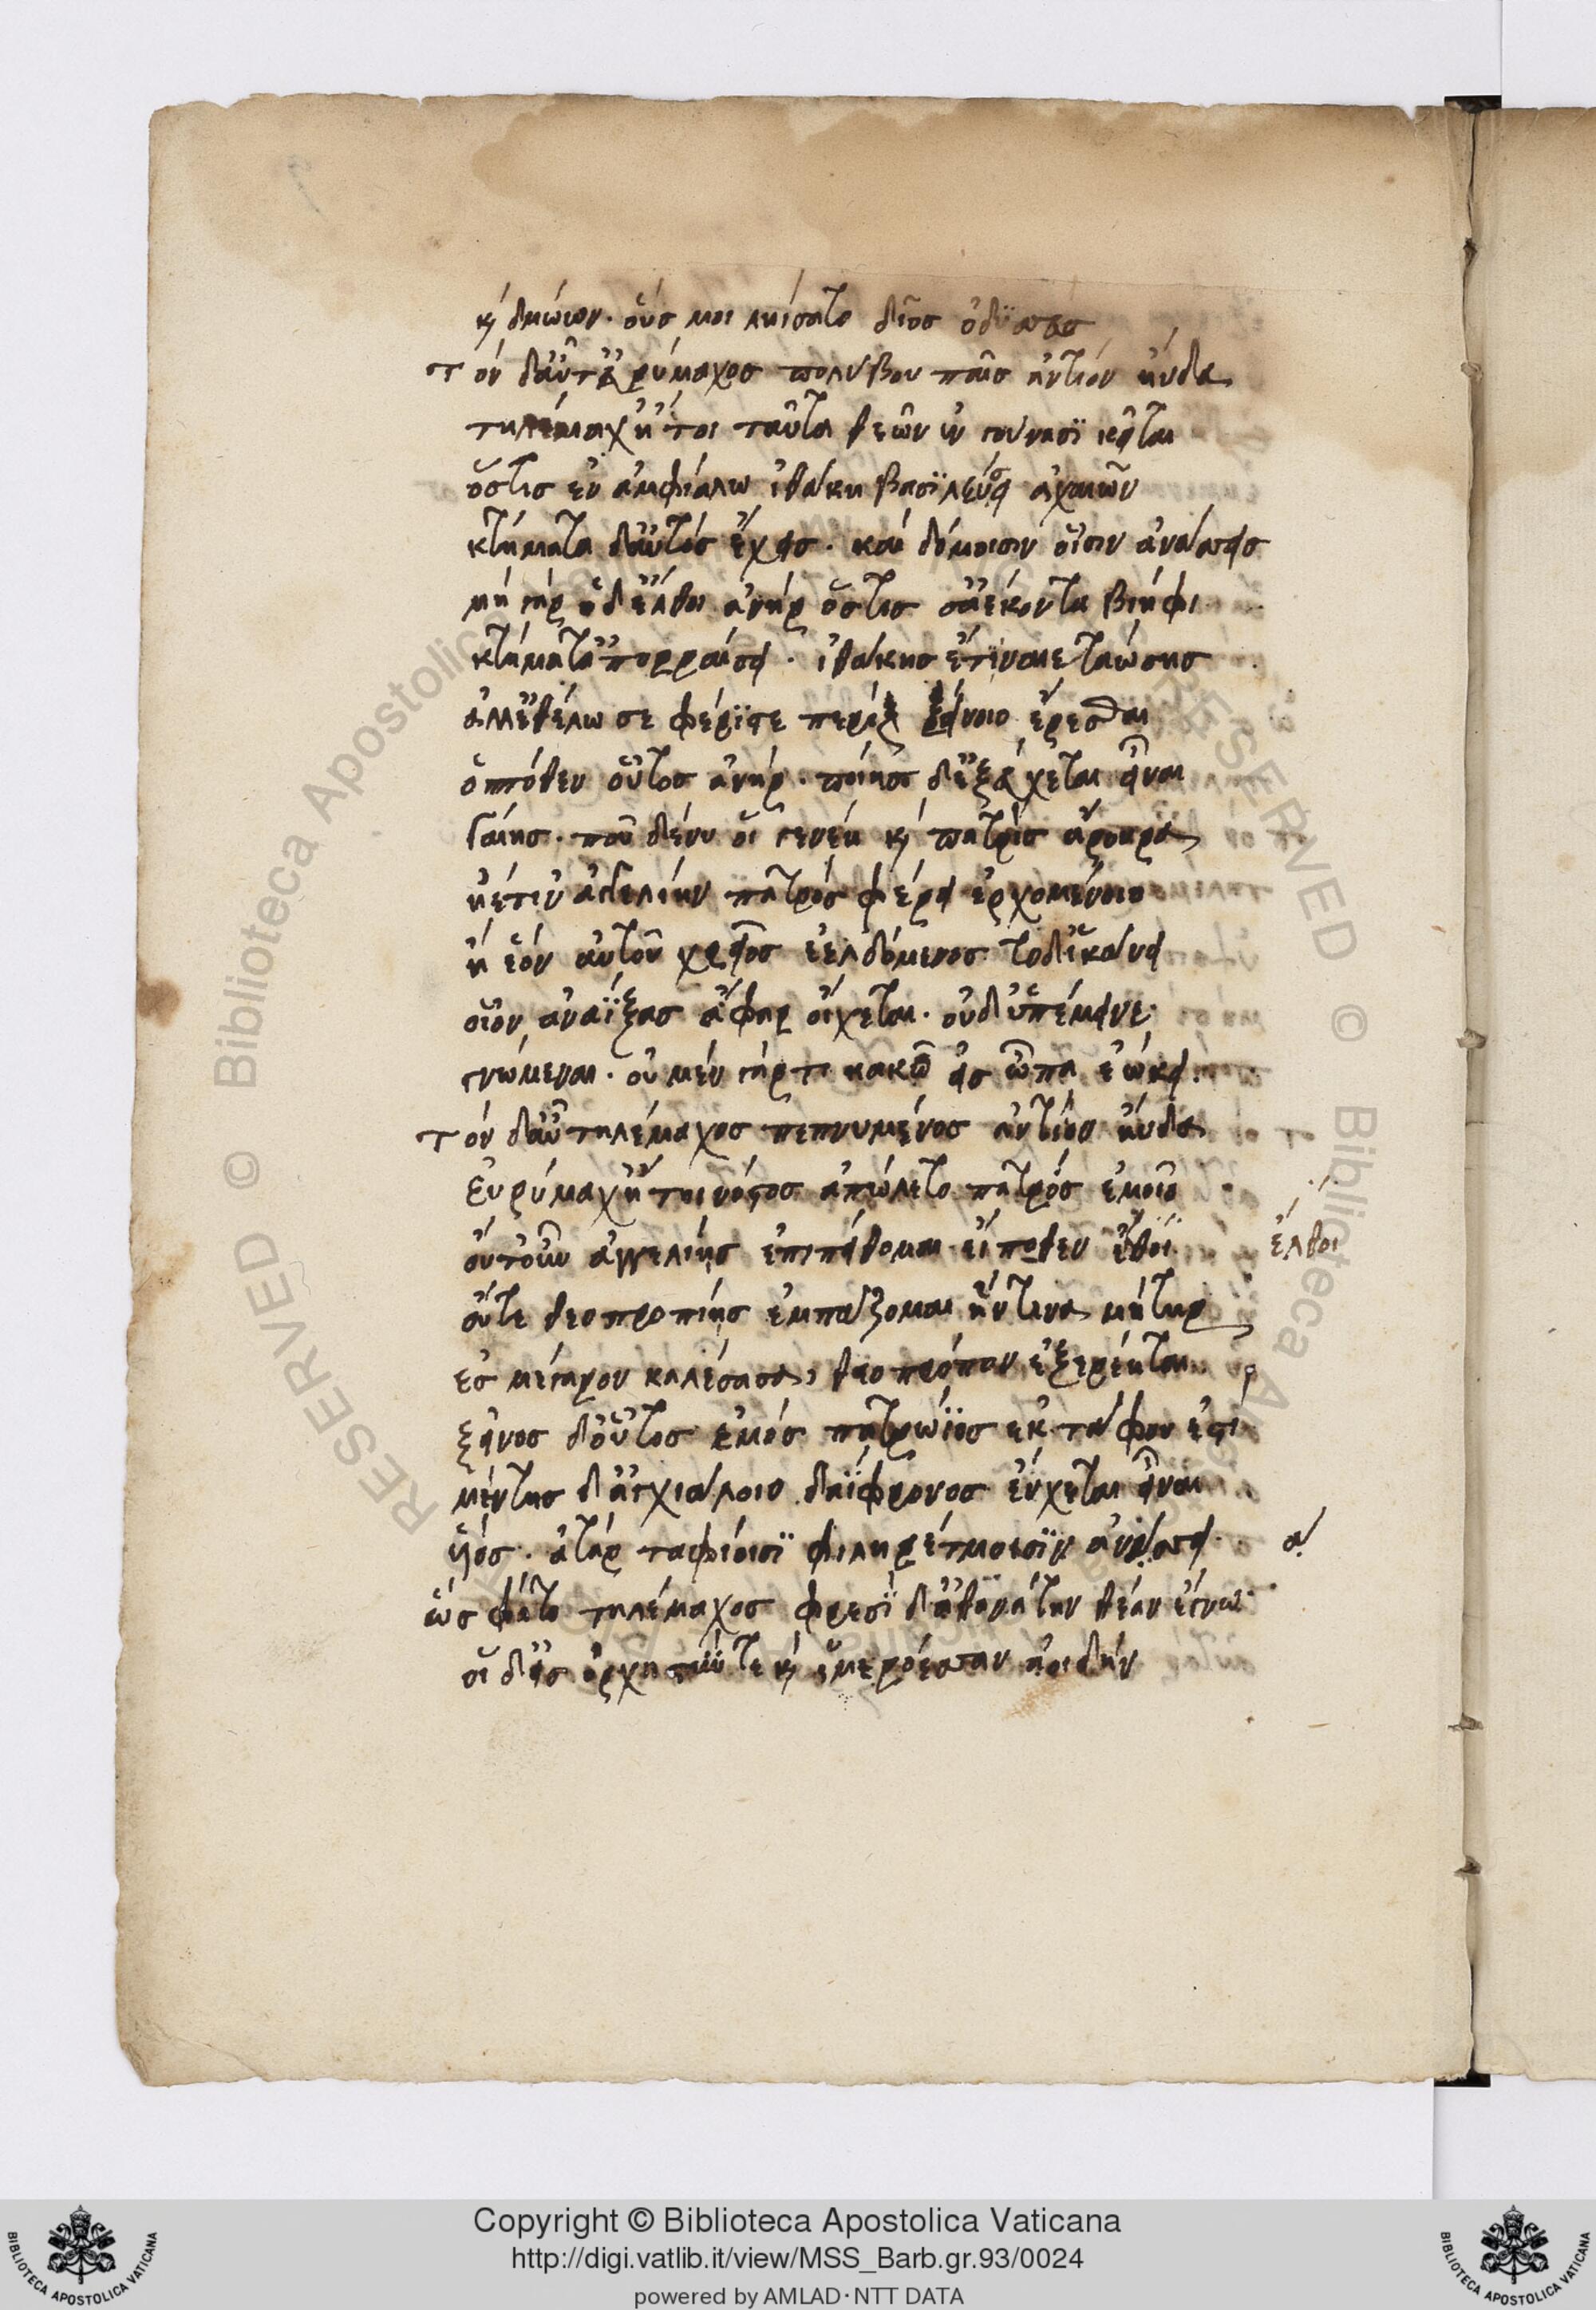 κ(αὶ) δμώων· οὕς μοι ληίσατο δῖος ὀδυσσεύς
τὸν δαὖτ εὐρύμαχος πολύβου παῖς ἀντίον ηὔδα
τηλέμαχ ἤτοι ταῦτα θεῶν ἐν γούνασϊ κεῖται
ὅστις ἐν ἀμφιάλω ἰθάκη βασϊλεύσει ἀχαιῶν
κτήματα δαὐτὸς ἔχοις· καὶ δόμοισιν οἷσιν ἀνάσσοις
μὴ γὰρ ὅδ ἔλθοι ἀνὴρ ὅστις σ ἀέκοντα βίηφι
κτήματ ἀπορραίσει· ἰθάκης ἔτι ναιεταώσης
ἀλλ ἐθέλω σε φέρϊστε περὶ ξείνοιο ἔρεσθαι
ὁππόθεν οὗτος ἀνήρ· ποίης δ ἐξ εὔχεται εἶναι
γαίης· ποῦ δέ νυ οἱ γενέη κ(αὶ) πατρὶς ἄρουρα
ἠέ τιν ἀγγελίην πατρὸς φέρει ἐρχομένοιο
ἢ ἑὸν αὐτοῦ χρεῖος ἐελδόμενος τόδ ἱκάνει
οἷον ἀναΐξας ἄφαρ οἴχεται· οὐδ ὑπέμεινε
γνώμεναι· οὐ μὲν γάρ τι κακῶ εἰς ὦπα ἐώκει
τὸν δαὖ τηλέμαχος πεπνυμένος ἀντίον ηὔδα
Εὐρύμαχ ἤτοι νόστος ἀπώλετο πατρὸς ἐμοῖο
οὔτ οὖν ἀγγελίης ἔπι πείθομαι εἴ ποθεν ἔθοι ἔλθοι
οὔτε θεοπροπίης ἐμπάζομαι ἥντινα μήτηρ
ἐς μέγαρον καλέσασα, θεοπρόπον ἐξερέηται
ξεῖνος δ οὗτος ἐμὸς πατρώϊος ἐκ τάφου ἐστι
μέντης δ ἀγχιάλοιο δαΐφρονος εὔχεται εἶναι
υἱός· ἀτὰρ ταφίοισϊ φιληρέτμοισϊν ἀνάσσει· α
ὣς φάτο τηλέμαχος φρεσϊ δ ἀθανάτην θεὰν ἔγνω
οἱ δ εἰς ὀρχηστύν τε κ(αὶ) ἱμερόεσσαν ἀοιδήν
Copyright © Biblioteca Apostolica Vaticana
http://digi.vatlib.it/view/MSS_Barb.gr.93/0024
powered by AMLAD·NTT DATA
BIBLIOTECA APOSTOLICA VATICANA
BIBLIOTECA APOSTOLICA VATICANA